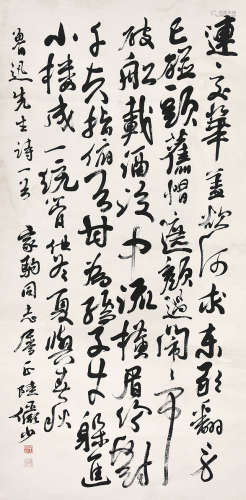 運交華蓋欲何求未敢翻身
已碰頭舊帽遮顏過鬧市
破船載酒泛中流橫眉冷對
千夫指俯首甘為孺子牛躲進
小樓成一統管他冬夏與春秋
魯迅先生詩一首 家駒同志屬正 陸儼少